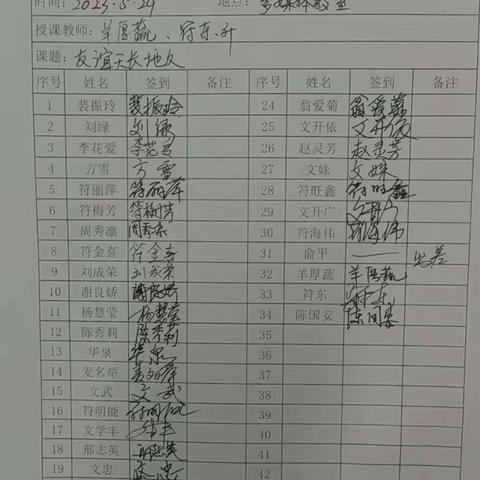 时间：2023.5.29 地点：多媒体教室
授课教师：羊厚蔬、符东、升
课题：友谊天长地久
序号 姓名 签到 备注 序号 姓名 签到 备注
1 裴振玲 裴振玲 24 翁爱菊 翁爱菊
2 刘绿 刘绿 25 文开依 文开依
3 李花爱 李花爱 26 赵灵芳 赵灵芳
4 方雪 方雪 27 文妹 文妹
5 符丽萍 符丽萍 28 符旺鑫 符旺鑫
6 符梅芳 符梅芳 29 文开广 文开广
7 周秀凛 周秀凛 30 符海伟 符海伟
8 符金喜 符金喜 31 俞平 —— 出差
9 刘成荣 刘成荣 32 羊厚蔬 羊厚蔬
10 谢良娇 谢良娇 33 符东 符东
11 杨慧莹 杨慧莹 34 陈国安 陈国安
12 陈秀莉 陈秀莉 35
13 华泉 华泉 36
14 麦名举 37
15 文武 文武 38
16 符明能 符明能 39
17 文学丰 40
18 邢志英 邢志英 41
19 文忠 文忠 42